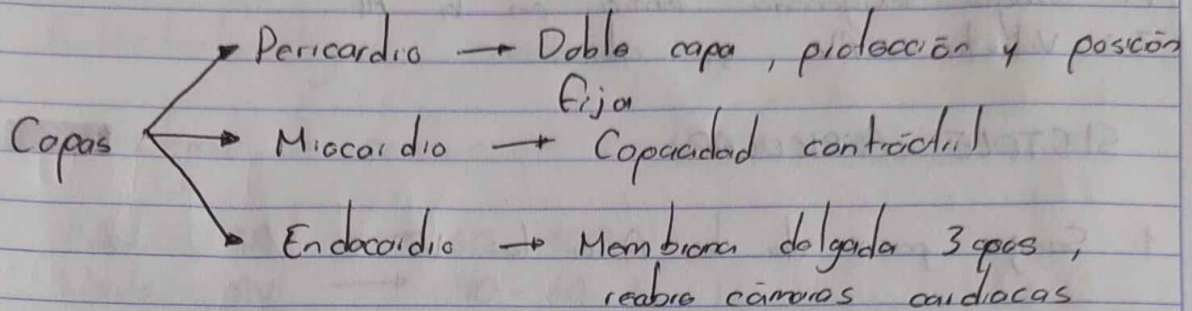 Pericardio → Doble capa, protección y posición
fija
Capas → Miocardio → Capacidad contráctil
Endocardio → Membrana delgada 3 capas,
recubre cámaras cardiacas